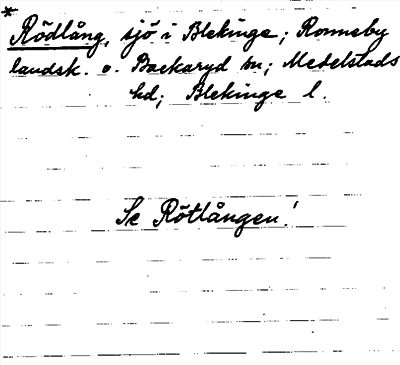 *
Rödlång, sjö i Blekinge; Ronneby
landsk. o. Backaryd sn; Medelstads
hd; Blekinge l.
Se Rötlången!